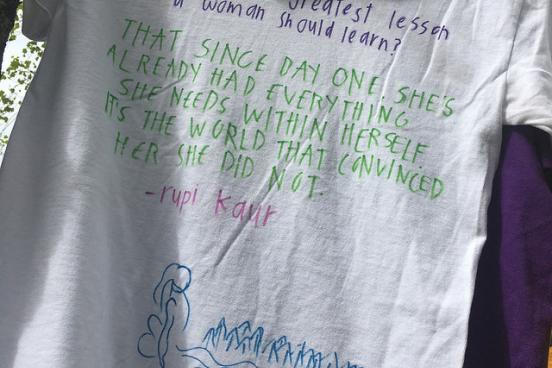 greatest lesson
a woman should learn?
THAT SINCE DAY ONE. SHE'S
ALREADY HAD EVERYTHING
SHE NEEDS WITHIN HERSELF.
IT'S THE WORLD THAT CONVINCED
HER SHE DID NOT.
-rupi kaur